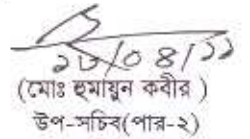 ২৬/০৪/২২
(মোঃ হুমায়ুন কবীর )
উপ-সচিব(পার-২)